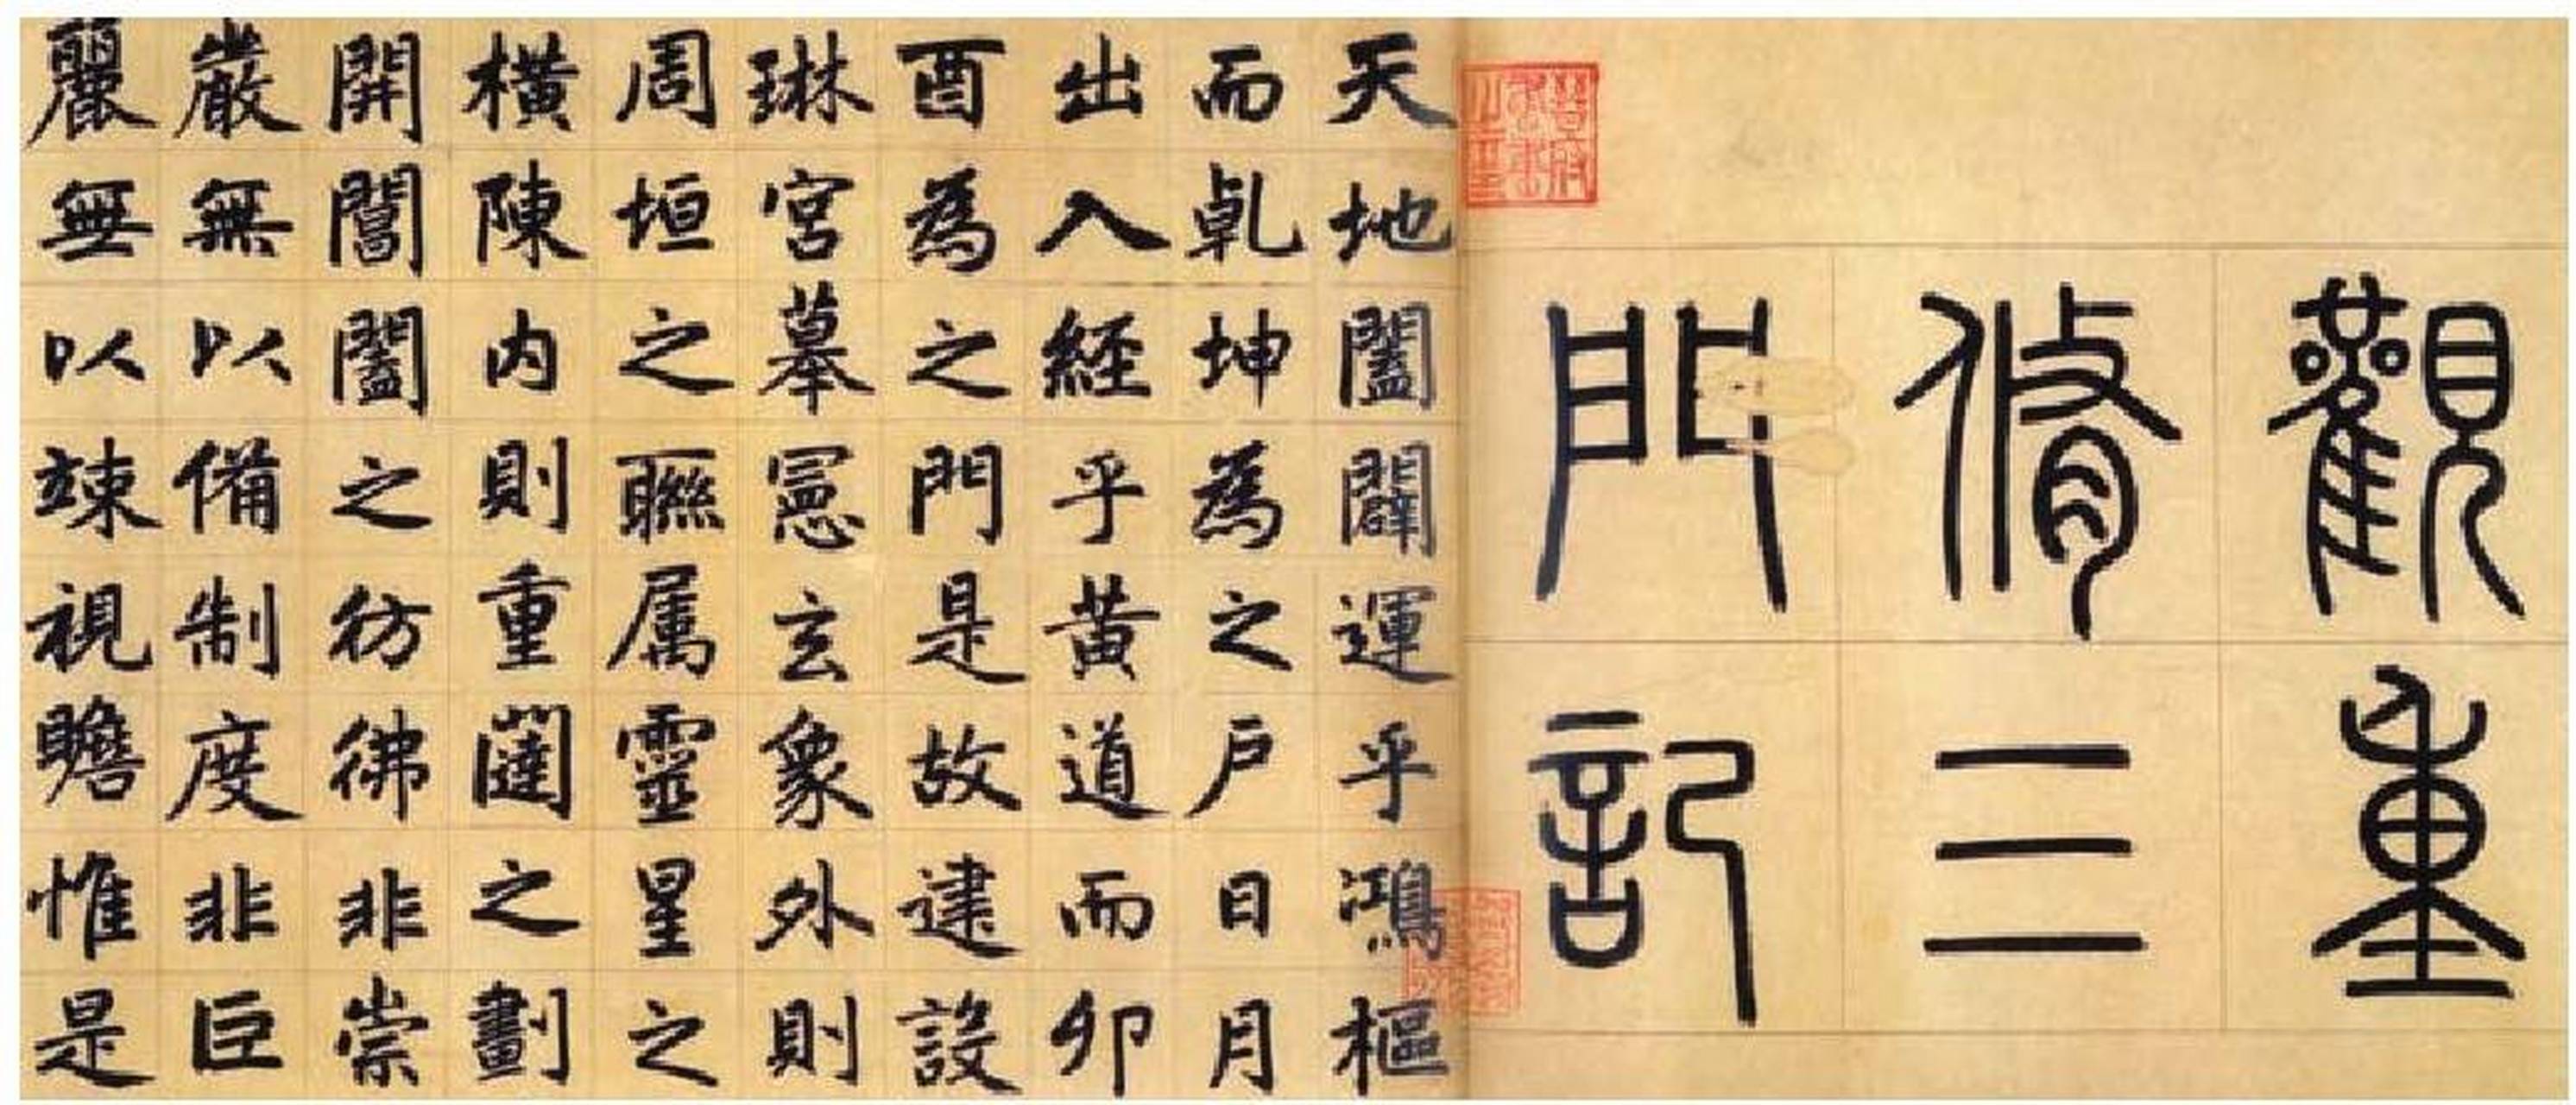 觀重
脩三
門記
天地闔闢運乎鴻樞
而乹坤為之户日月
出入経乎黄道而卯
酉為之門是故建設
琳宮摹憲玄象外則
周垣之聮属靈星之
横陳内則重闥之劃
開閶闔之彷彿非崇
嚴無以備制度非巨
麗無以竦視瞻惟是